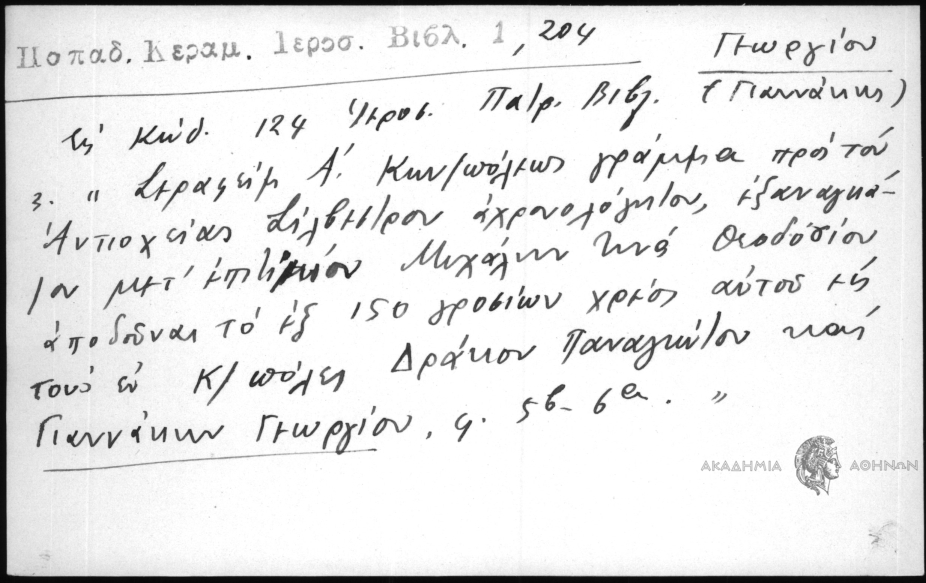 Παπαδ. Κεραμ. Ιεροσ. Βιβλ. 1, 204
Γεωργίου
(Γιαννάκης)
Εἰς Κώδ. 124 Ἱεροσ. Πατρ. Βιβλ.
3. " Σεραφεὶμ Α΄. Κων/πόλεως γράμμα πρὸς τὸν
Ἀντιοχείας Σίλβεστρον ἀχρονολόγητον, ἐξαναγκά-
ζον μετ' ἐπιτιμίου Μιχάλην τινὰ Θεοδοσίου
ἀποδοῦναι τὸ ἐξ 150 γροσίων χρέος αὐτοῦ εἰς
τοὺς ἐν Κ/πόλει Δράκον Παναγιώτου καὶ
Γιαννάκην Γεωργίου, φ. 5β - 6α. "
ΑΚΑΔΗΜΙΑ ΑΘΗΝΩΝ